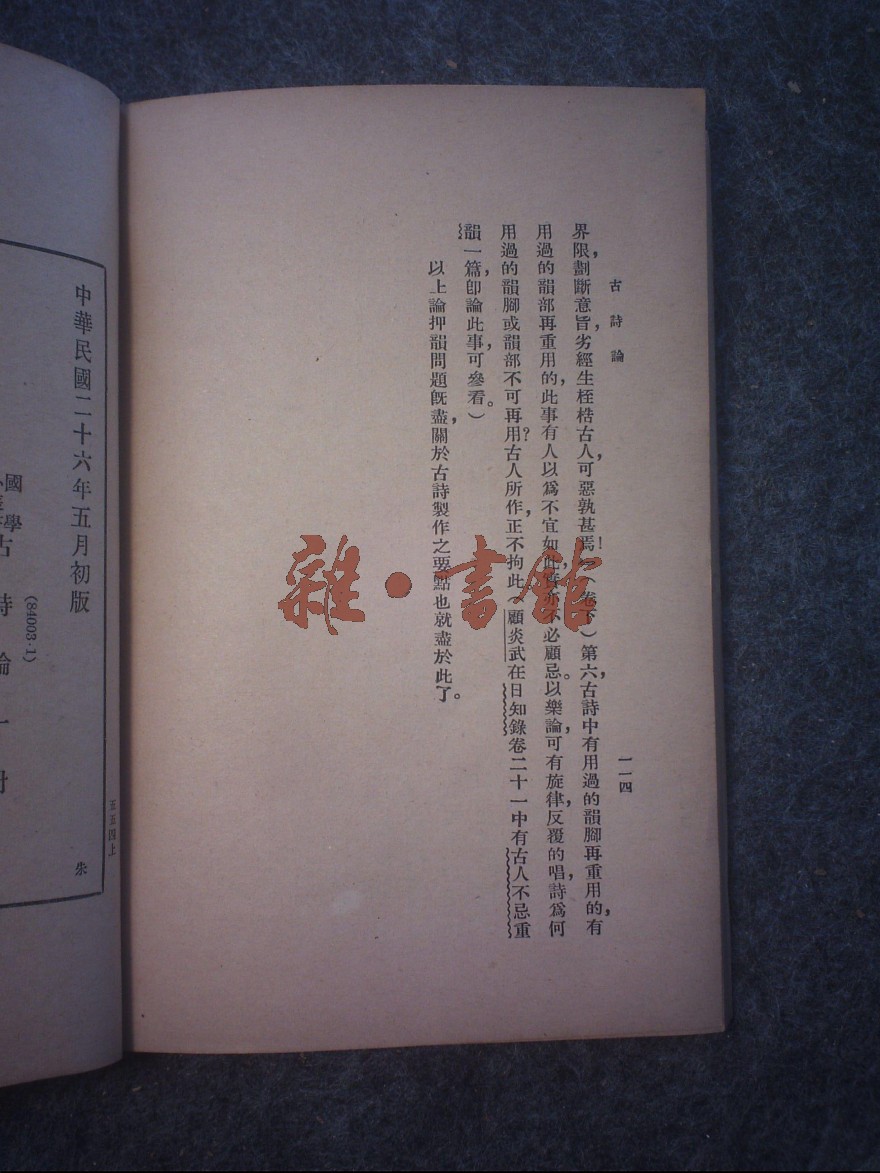 古詩論
一一四
界限，劃斷意旨，劣經生桎梏古人，可惡孰甚焉！（卷下）第六，古詩中有用過的韻腳再重用的，有
用過的韻部再重用的，此事有人以爲不宜如此，實亦不必顧忌。以樂論，可有旋律，反覆的唱，詩爲何
用過的韻腳或韻部不可再用？古人所作，正不拘此。（顧炎武在日知錄卷二十一中有古人不忌重
韻一篇，卽論此事，可參看。）
以上論押韻問題旣盡，關於古詩製作之要點也就盡於此了。
雜·書館
五五四上
中華民國二十六年五月初版
朱
(84003·1)
國學
古詩論一冊